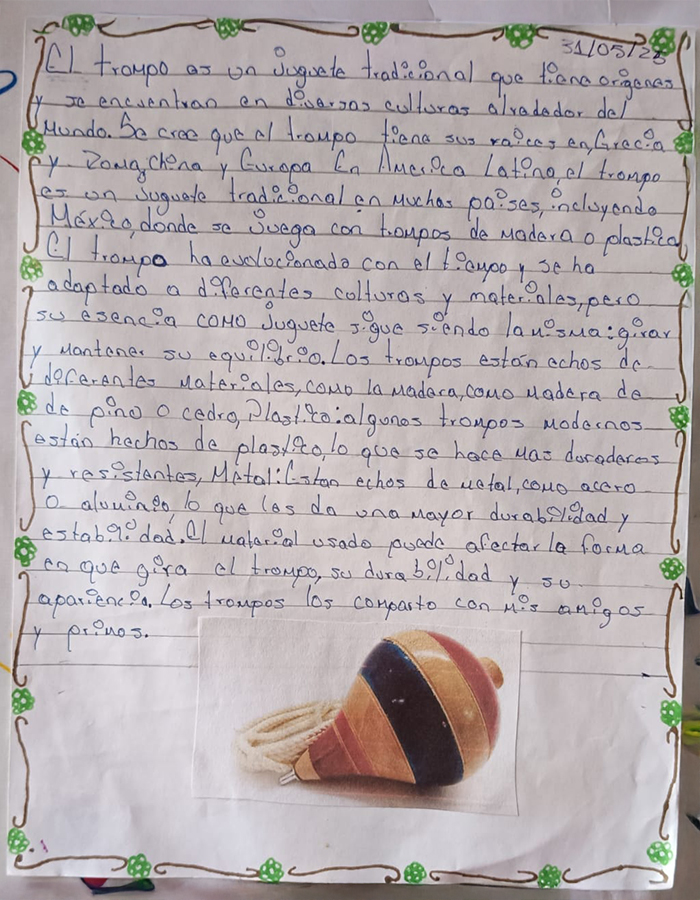 31/05/25
El trompo es un juguete tradicional que tiene orígenes
y se encuentran en diversas culturas alrededor del
Mundo. Se cree que el trompo tiene sus raíces en, Grecia
y Roma, china y Europa En America Latina, el trompo
es un juguete tradicional en muchos países, incluyendo
México, donde se juega con trompos de madera o plastico
El trompo ha evolucionado con el tiempo y se ha
adaptado a diferentes culturas y materiales, pero
su esencia como juguete sigue siendo la misma: girar
y mantener su equilibrio. Los trompos están echos de
diferentes materiales, como la madera, como madera de
de pino o cedro, Plastico: algunos trompos modernos
están hechos de plastico, lo que se hace mas duraderos
y resistentes, Métal: Estan echos de metal, como acero
o aluminio, lo que les da una mayor durabilidad y
estabilidad. El material usado puede afectar la forma
en que gira el trompo, su durabilidad y su
apariencia. Los trompos los comparto con mis amigos
y primos.